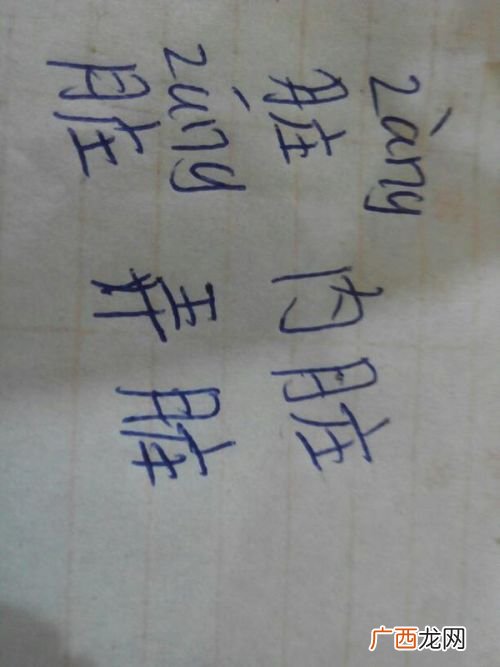 zàng
脏 内脏
zāng
脏 弄脏
广西龙网